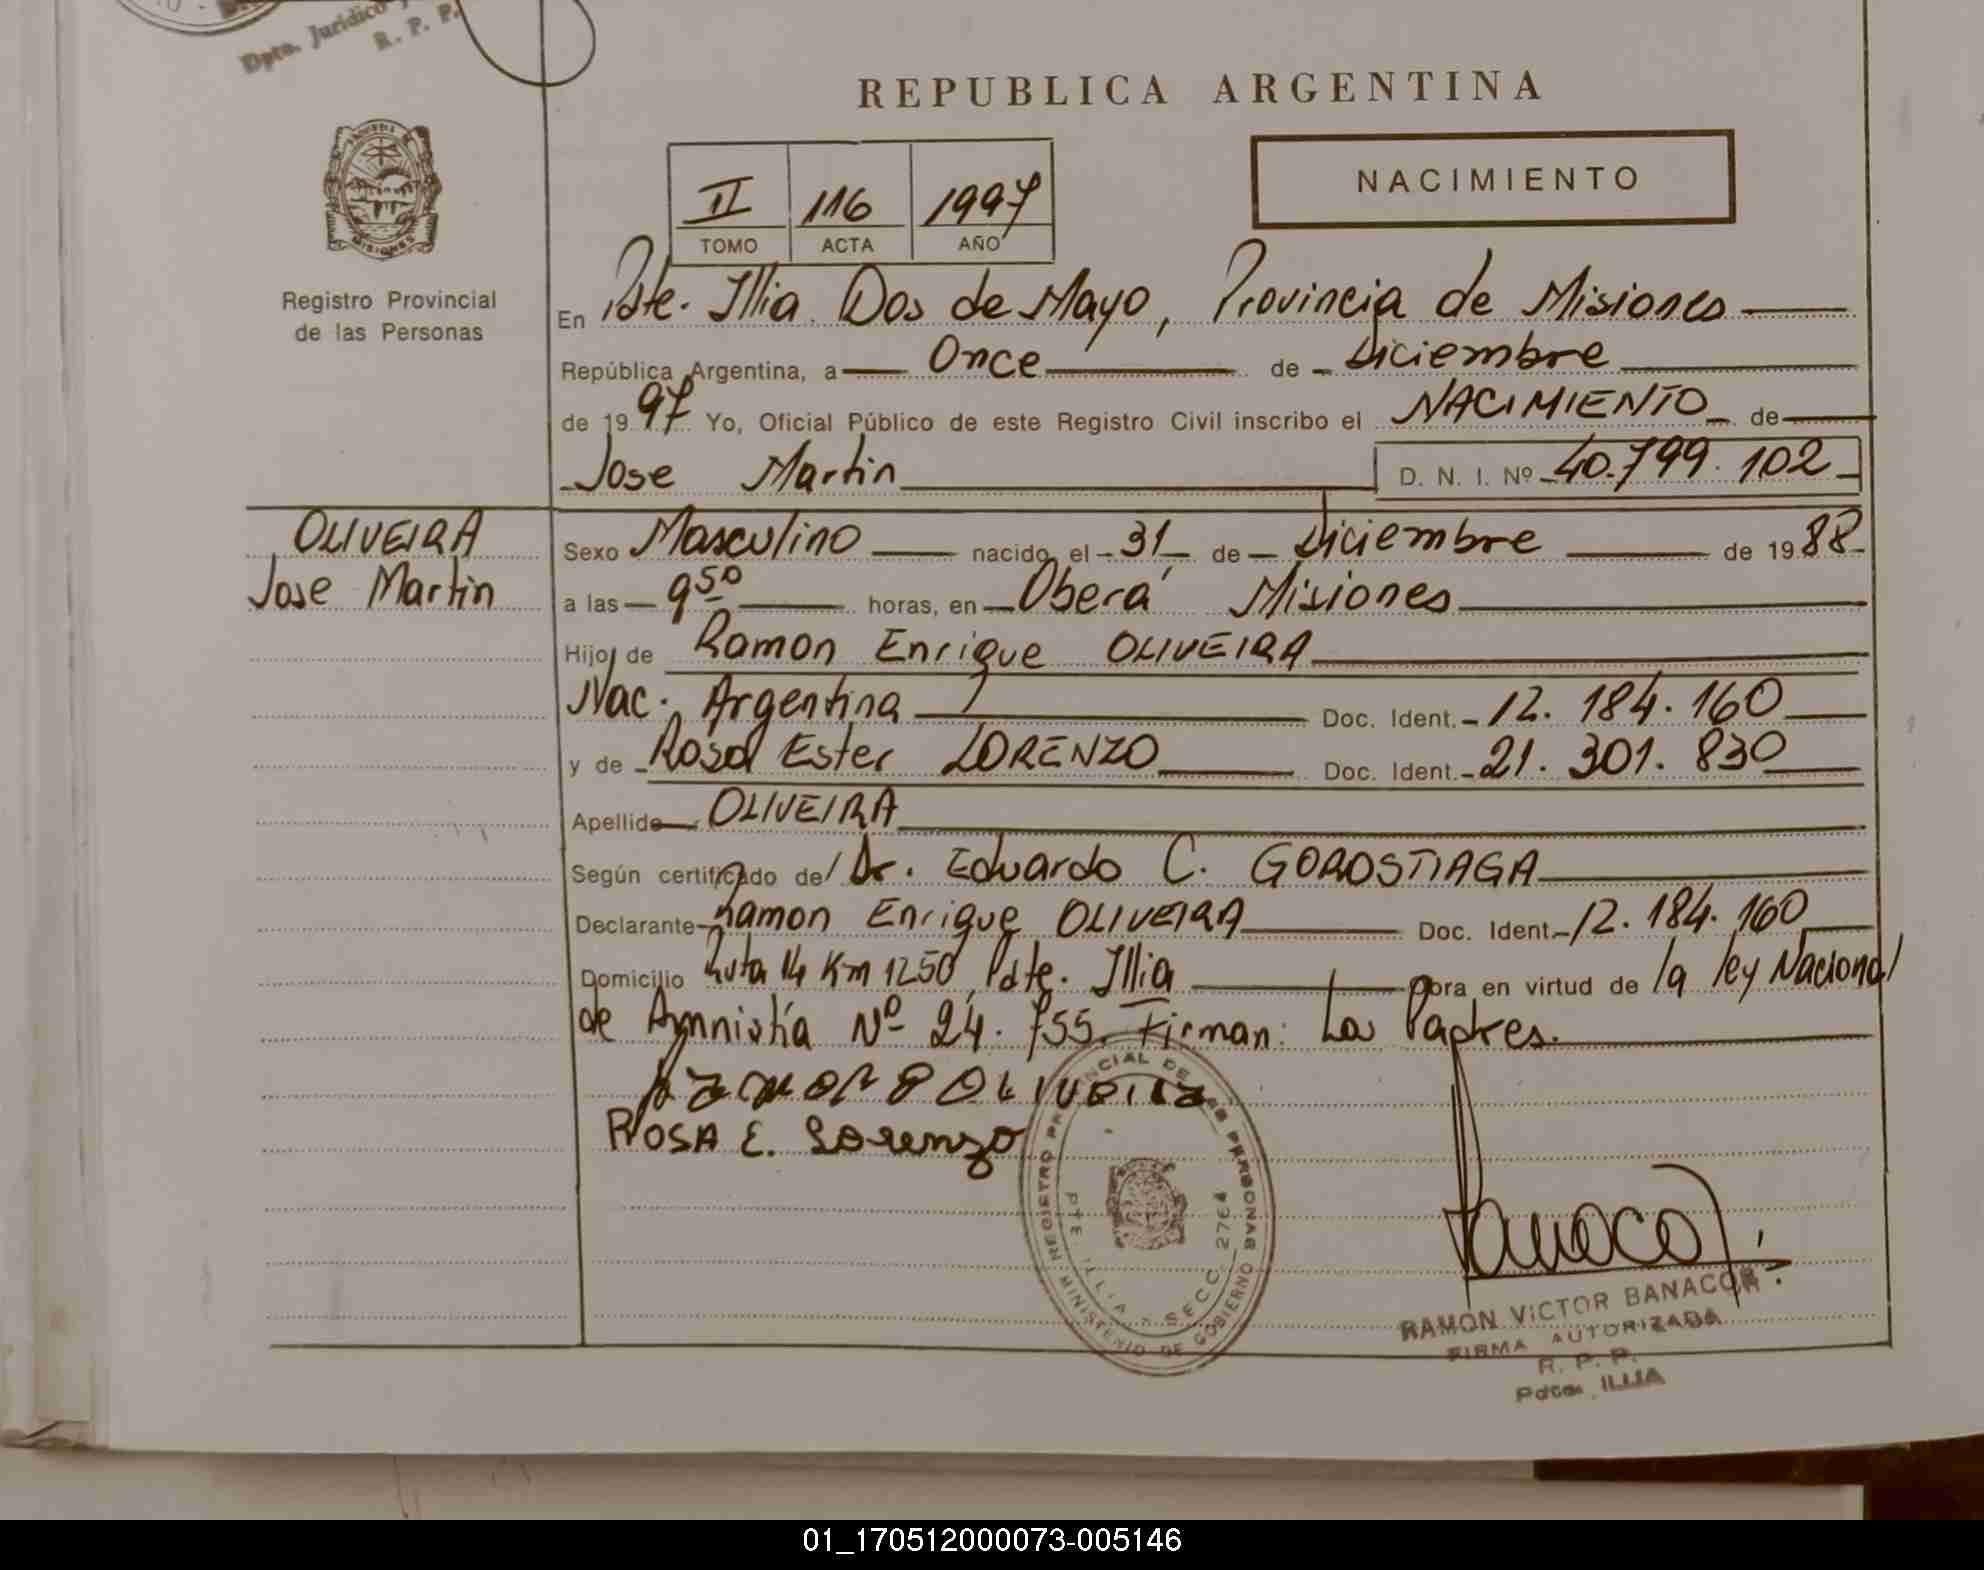 Dpto. Jurídico
R. P. P.
REPUBLICA ARGENTINA
NACIMIENTO
II 116 1997
TOMO ACTA AÑO
MISIONES
Registro Provincial
de las Personas
En Pdte. Illia. Dos de Mayo, Provincia de Misiones
República Argentina, a Once de Diciembre
de 1997 Yo, Oficial Público de este Registro Civil inscribo el NACIMIENTO de
Jose Martin D. N. I. Nº 40.799.102
OLIVEIRA
Jose Martin
Sexo Masculino nacido el 31 de Diciembre de 1988
a las 9 50 horas, en Oberá Misiones
Hijo de Ramon Enrique OLIVEIRA
Nac. Argentina Doc. Ident. 12.184.160
y de Rosa Ester LORENZO Doc. Ident. 21.301.830
Apellido OLIVEIRA
Según certificado de Dr. Eduardo C. GOROSTIAGA
Declarante Ramon Enrique OLIVEIRA Doc. Ident. 12.184.160
Domicilio Ruta 14 Km 1250 Pdte. Illia obra en virtud de la ley Nacional
de Amnistía Nº 24.755. Firman: Los Padres.
ROSA E. Lorenzo
REGISTRO PROVINCIAL DE LAS PERSONAS
PTE ILLIA - SECC. 2764
MINISTERIO DE GOBIERNO
RAMON VICTOR BANACOR
FIRMA AUTORIZADA
R. P. P.
Pdte. ILLIA
01_170512000073-005146